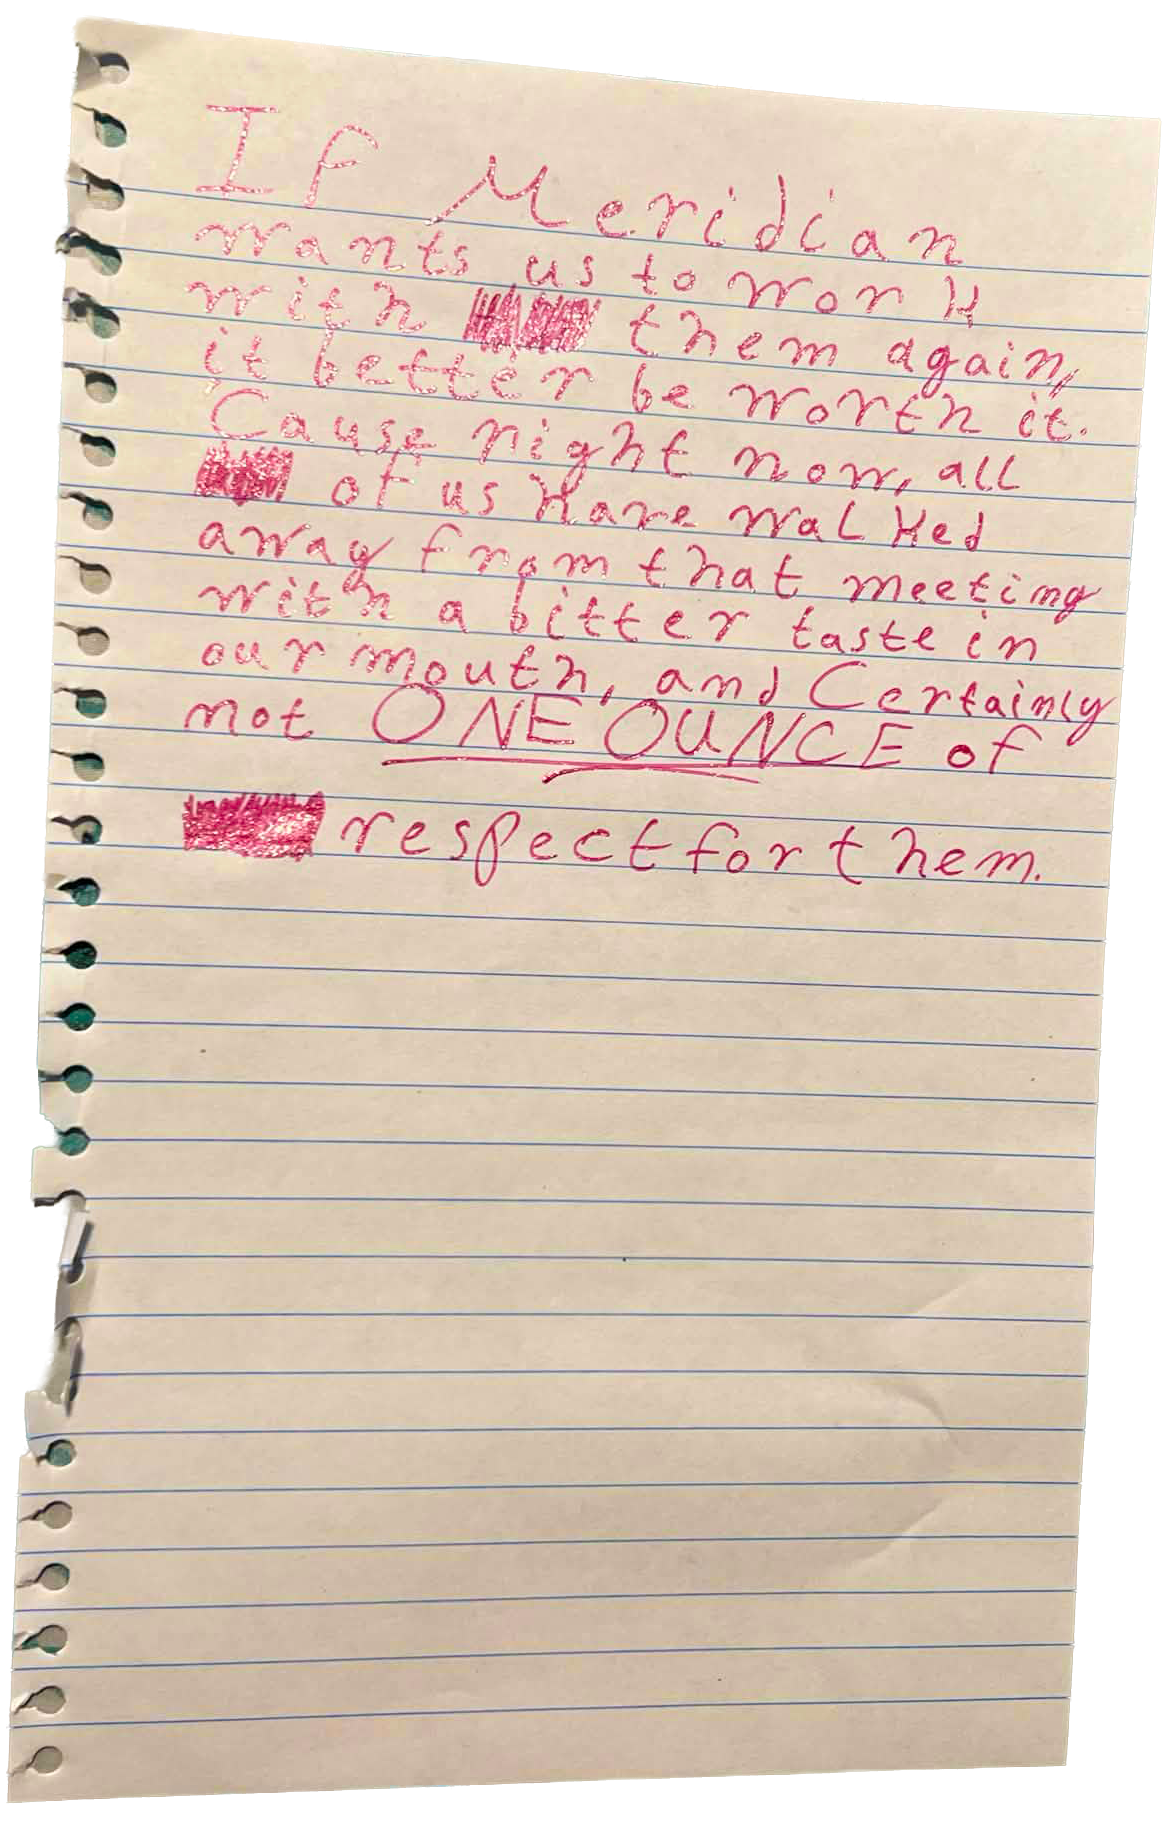 If Meridian
wants us to work
with them again,
it better be worth it.
Cause right now, all
of us have walked
away from that meeting
with a bitter taste in
our mouth, and Certainly
not ONE OUNCE of
respect for them.